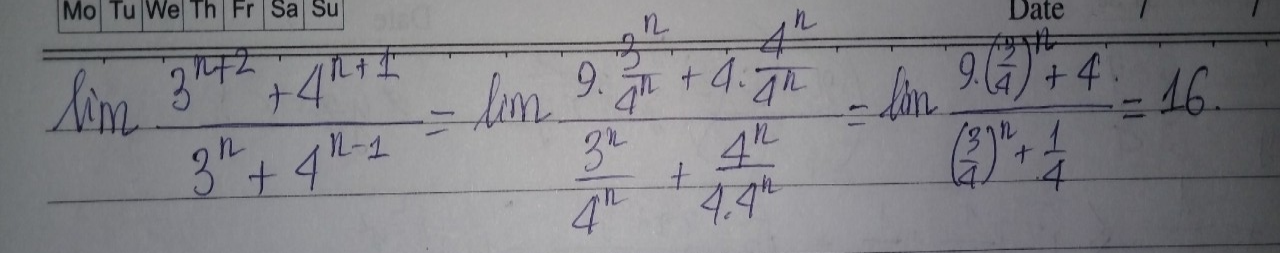 Mo Tu We Th Fr Sa Su Date / /
lim (3^{n+2} + 4^{n+1}) / (3^n + 4^{n-1}) = lim (9. 3^n/4^n + 4. 4^n/4^n) / (3^n/4^n + 4^n/4.4^n) = lim (9.(3/4)^n + 4.) / ((3/4)^n + 1/4) = 16.